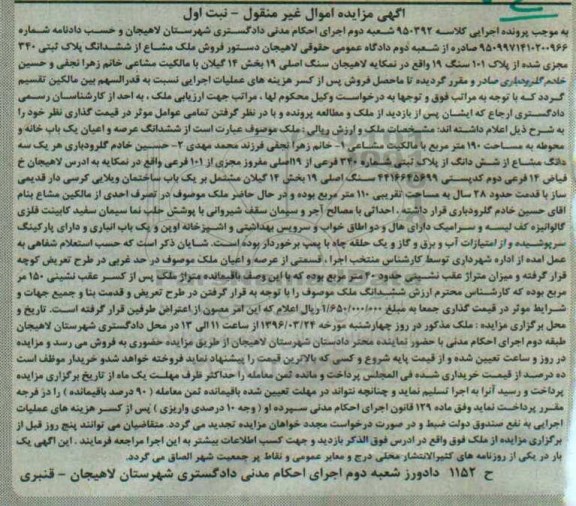 آگهی مزایده اموال غیر منقول - نبت اول
به موجب پرونده اجرایی کلاسه ۹۵۰۳۹۲ شعبه دوم اجرای احکام مدنی دادگستری شهرستان لاهیجان و حسب دادنامه شماره
۹۵۰۹۹۷۱۴۱۰۲۰۰۹۶۶ صادره از شعبه دوم دادگاه عمومی حقوقی لاهیجان دستور فروش ملک مشاع از ششدانگ پلاک ثبتی ۳۴۰
مجزی شده از پلاک ۱۰۱ سنگ ۱۹ واقع در نمکایه لاهیجان سنگ اصلی ۱۹ بخش ۱۴ گیلان با مالکیت مشاعی خانم زهرا نجفی و حسین
خادم گلرودباری صادر و مقرر گردیده تا ماحصل فروش پس از کسر هزینه های عملیات اجرایی نسبت به قدرالسهم بین مالکین تقسیم
گردد که با توجه به مراتب فوق و توجها به درخواست وکیل محکوم لها ، مراتب جهت ارزیابی ملک ، به احد از کارشناسان رسمی
دادگستری ارجاع که ایشان پس از بازدید از ملک و مطالعه پرونده و با در نظر گرفتن تمامی عوامل موثر در قیمت گذاری نظر خود را
به شرح ذیل اعلام داشته اند: مشخصات ملک و ارزش ریالی : ملک موصوف عبارت است از ششدانگ عرصه و اعیان یک باب خانه و
محوطه به مساحت ۱۹۰ متر مربع با مالکیت مشاعی ۱- خانم زهرا نجفی فرزند محمد مهدی ۲- حسین خادم گلرودباری هر یک سه
دانگ مشاع از شش دانگ از پلاک ثبتی شماره ۳۴۰ فرعی از ۱۹اصلی مفروز مجزی از ۱۰۱ فرعی واقع در نمکایه به ادرس لاهیجان خ
فیاض ۱۴ فرعی دوم کدپستی ۴۴۱۶۶۴۵۶۹۹ سنگ اصلی ۱۹ بخش ۱۴ گیلان مشتمل بر یک باب ساختمان ویلایی کرسی دار قدیمی
ساز با قدمت حدود ۲۸ سال به مساحت تقریبی ۱۱۰ متر مربع بوده و در حال حاضر ملک موصوف در تصرف احدی از مالکین مشاع بنام
اقای حسین خادم گلرودباری قرار داشته . احداثی با مصالح آجر و سیمان سقف شیروانی با پوشش حلب نما سیمان سفید کابینت فلزی
گالوانیزه کف لیسه و سرامیک دارای هال و دو اطاق خواب و سرویس بهداشتی و اشپزخانه اوپن و یک باب انباری و دارای پارکینگ
سرپوشیده و از امتیازات آب و برق و گاز و یک حلقه چاه با پمپ برخوردار بوده است. شایان ذکر است که حسب استعلام شفاهی به
عمل امده از اداره شهرداری توسط کارشناس منتخب اجرا ، قسمتی از عرصه و اعیان ملک موصوف در حد غربی در طرح تعریض کوچه
قرار گرفته و میزان متراژ عقب نشینی حدود ۴۰ متر مربع بوده که با این وصف باقیمانده متراژ ملک پس از کسر عقب نشینی ۱۵۰ مر
مربع بوده که کارشناس محترم ارزش ششدانگ ملک موصوف را با توجه به قرار گرفتن در طرح تعریض و قدمت بنا و جمیع جهات و
شرایط موثر در قیمت گذاری جمعا به مبلغ ۱/۶۵۰/۰۰۰/۰۰۰ ریال اعلام که این امر مصون از اعتراض طرفین قرار گرفته است. تاریخ و
محل برگزاری مزایده : ملک مذکور در روز چهارشنبه مورخه ۱۳۹۶/۰۳/۲۴ از ساعت ۱۱ الی ۱۳ در محل دادگستری شهرستان لاهیجان
طبقه دوم اجرای احکام مدنی با حضور نماینده محتر دادستان شهرستان لاهیجان از طریق مزایده حضوری به فروش می رسد و مزایده
در روز و ساعت تعیین شده و از قیمت پایه شروع و کسی که بالاترین قیمت را پیشنهاد نماید فروخته خواهد شدو خریدار موظف است
ده درصد از قیمت خریداری شده فی المجلس پرداخت و مانده ثمن معامله را حداکثر ظرف مهلت یک ماه از تاریخ برگزاری مزایده
پرداخت و رسید آنرا به اجرا تسلیم نماید و چنانچه نتواند در مهلت تعیین شده باقیمانده ثمن معامله ( ۹۰ درصد باقیمانده ) را در فرجه
مقرر پرداخت نماید وفق ماده ۱۲۹ قانون اجرای احکام مدنی سپرده او ( وجه ۱۰ درصدی واریزی ) پس از کسر هزینه های عملیات
اجرایی به نفع صندوق دولت ضبط و در صورت درخواست مجدد خواهان مزایده تجدید می گردد. متقاضیان می توانند پنج روز قبل از
برگزاری مزایده از ملک فوق واقع در ادرس فوق الذکر بازدید و جهت کسب اطلاعات بیشتر به این اجرا مراجعه فرمایند . این آگهی یک
بار در یکی از روزنامه های کثیرالانتشار محلی درج و معابر عمومی و نقاط پر جمعیت شهر الصاق می گردد.
ح ۱۱۵۲ دادورز شعبه دوم اجرای احکام مدنی دادگستری شهرستان لاهیجان - قنبری